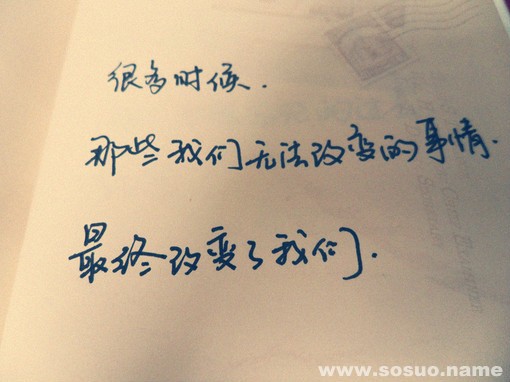 很多时候.
那些我们无法改变的事情.
最终改变了我们.
www.sosuo.name